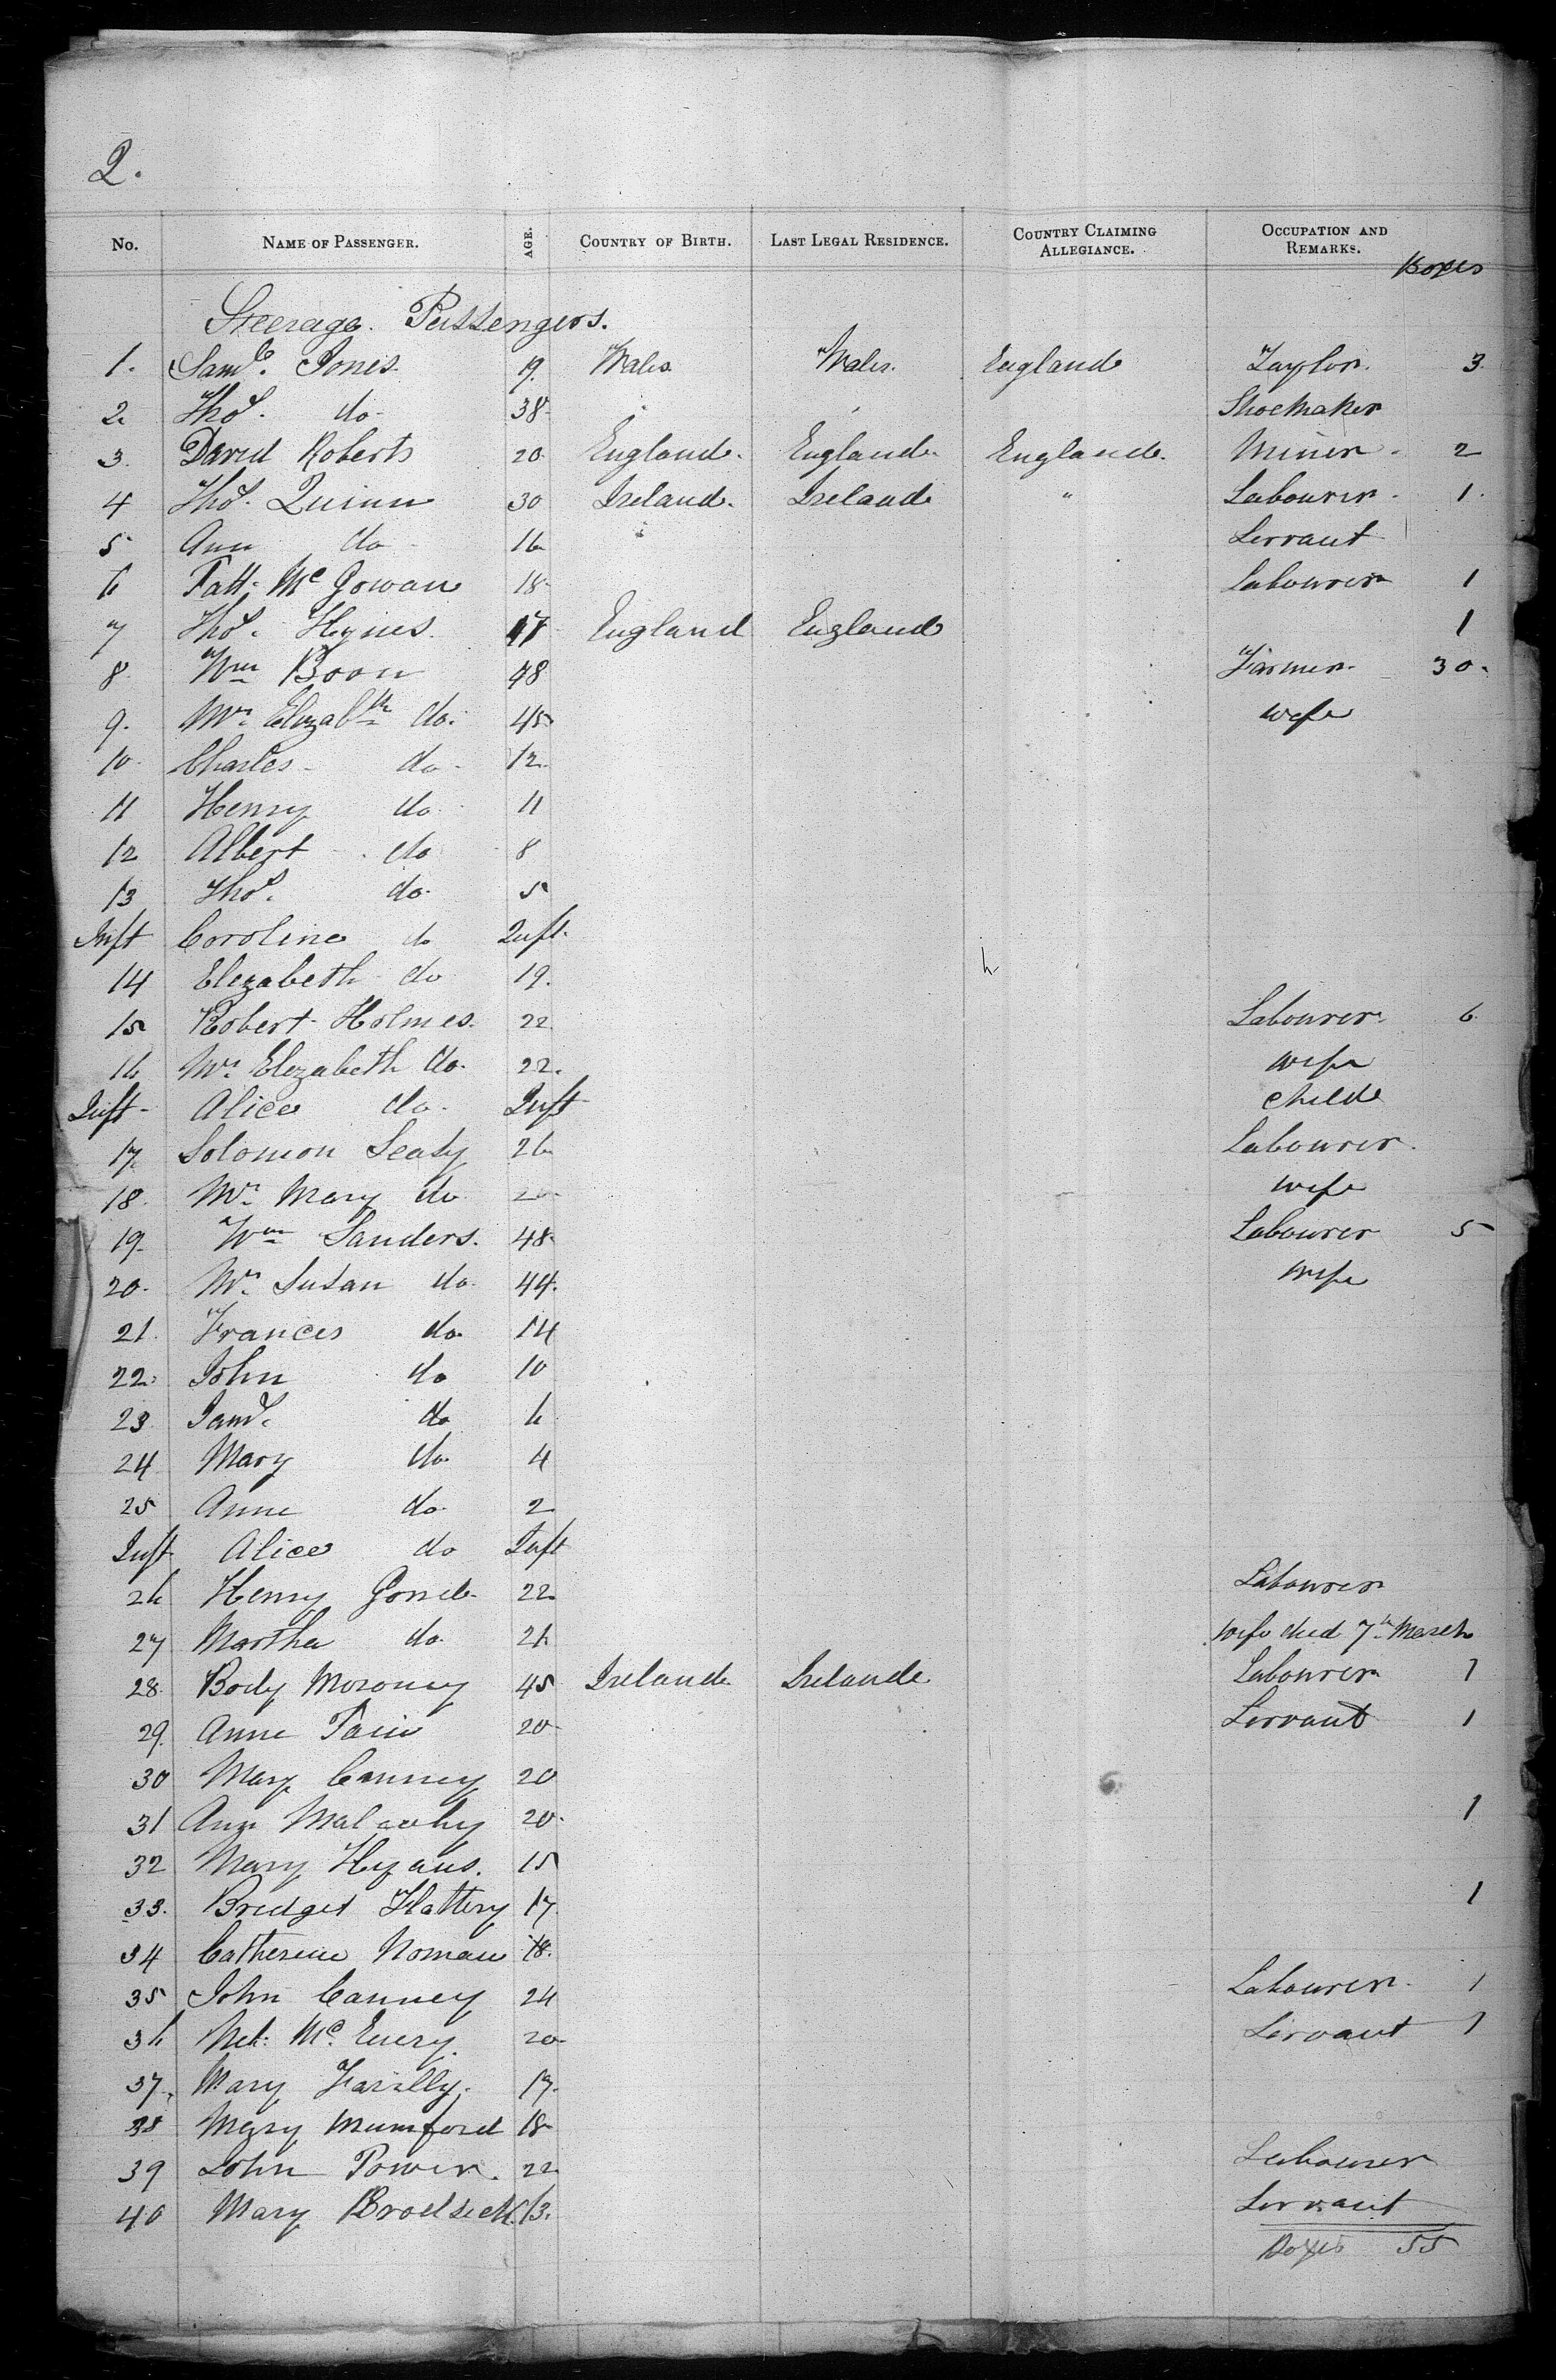 2.
No. NAME OF PASSENGER. AGE. COUNTRY OF BIRTH. LAST LEGAL RESIDENCE. COUNTRY CLAIMING ALLEGIANCE. OCCUPATION AND REMARKS. Boxes
Steerage Passengers.
1. Saml. Jones 19. Wales Wales England Taylor. 3
2 Thos. do 38 Shoemaker
3. David Roberts 20 England. England England. Miner 2
4 Thos. Quinn 30 Ireland. Ireland " Labourer 1.
5 Ann do 16 Servant
6 Patt. Mc Gowan 18 Labourer 1
7 Thos. Hynes 17 England England 1
8. Wm Boon 48 Farmer. 30.
9. Mrs. Elizabth do. 45 wife
10 Charles do 12
11 Henry do 11
12 Albert do 8
13 Thos. do 5
Inft Coroline do Inft.
14 Elezabeth do 19.
15 Robert Holmes. 22 Labourer. 6
16 Mrs. Elezabeth do. 22. wife
Inft Alice do. Inft child
17. Solomon 26 Labourer.
18. Mrs. Mary do wife
19. Wm Sanders. 48 Labourer 5
20. Mrs. Susan do. 44. wife
21. Frances do 14
22. John do 10
23 Saml. do 6
24 Mary do 4
25 Anne do 2
Inft Alice do Inft
26 Henry 22 Labourer
27 Martha do. 21 wife died 7th March
28. Body Moroney 45 Ireland Ireland Labourer 1
29. Anne 20 Servant 1
30 Mary Canney 20
31 Ann 20. 1
32 Mary 15
33. Bridget Flattery 17 1
34 Catherine Noman 18.
35 John Canney 24 Labourer. 1
36 Mc. 20 Servant 1
37. Mary Farilly. 17.
38 Mary Mumford 18
39 John Power. 22 Labourer
40 Mary 13. Servant
Boxes 55